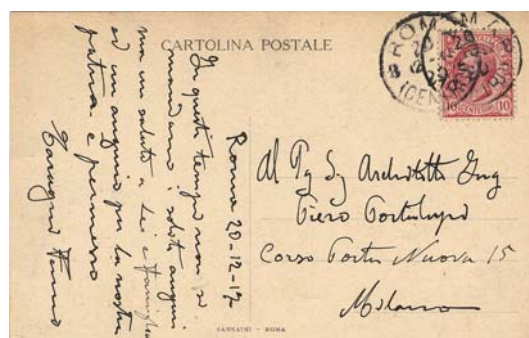 CARTOLINA POSTALE
ROMA
10 CENTESIMI 10
Roma 20-12-17
In questi tempi non si
mandano i soliti auguri
ma un saluto a Lei e famiglia
ed un augurio per la nostra
patria è permesso
Al Pg Sig Architetto Ing
Piero Portaluppi
Corso Porta Nuova 15
Milano
SANSAINI - ROMA